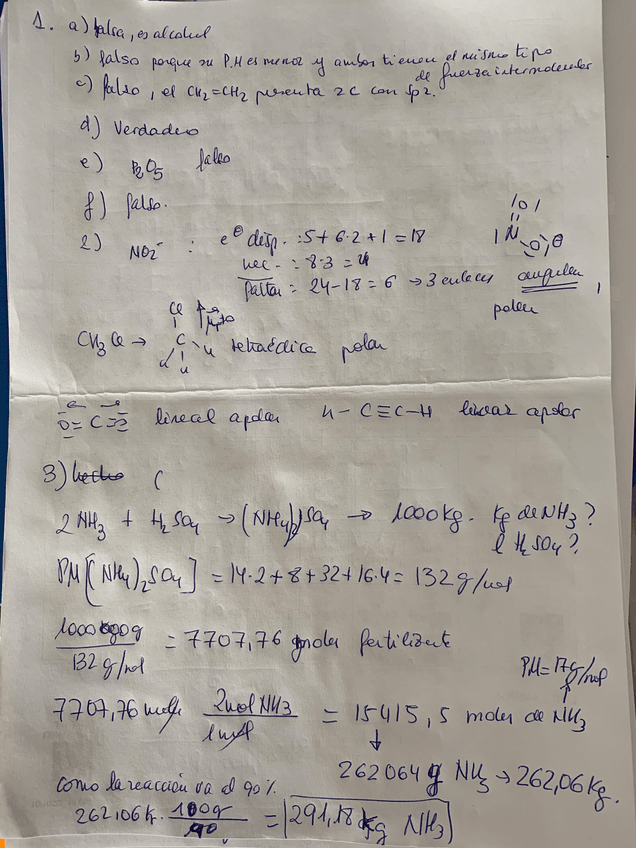 1. a) falsa, es alcohol
b) falso porque su P.M es menor y ambos tienen el mismo tipo
de fuerza intermolecular
c) falso, el CH₂=CH₂ presenta 2C con sp2.
d) Verdadero
e) P₂O₅ falso
f) falso.
2) NO₂⁻ : e⁻ disp. : 5+6·2+1 = 18
nec. : 8·3 = 24
faltan = 24-18 = 6 → 3 enlaces angular,
polar
CH₃Cl → tetraédrica polar
O=C=O lineal apolar H-C≡C-H linear apolar
3) hecho (
2NH₃ + H₂SO₄ → (NH₄)₂SO₄ → 1000kg. Kg de NH₃?
l H₂SO₄?
PM[(NH₄)₂SO₄] = 14·2+8+32+16·4 = 132 g/mol
1000000g / 132 g/mol = 7707,76 moles fertilizante
PM=17g/mol
7707,76 moles 2mol NH₃ / 1mol = 15415,5 moles de NH₃
262064 g NH₃ → 262,06 Kg.
como la reacción va al 90%
262,06 K. 100g / 90 = 291,18 Kg NH₃